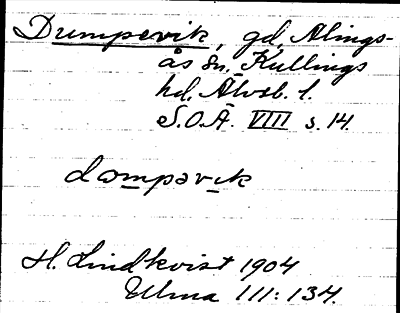 Drumpevik, gd, Alings-
ås sn, Kullings
hd, Älvsb. l.
S.O.Ä. VIII s. 14.
drompəvik
H. Lindkvist 1904
Ulma 111:134.